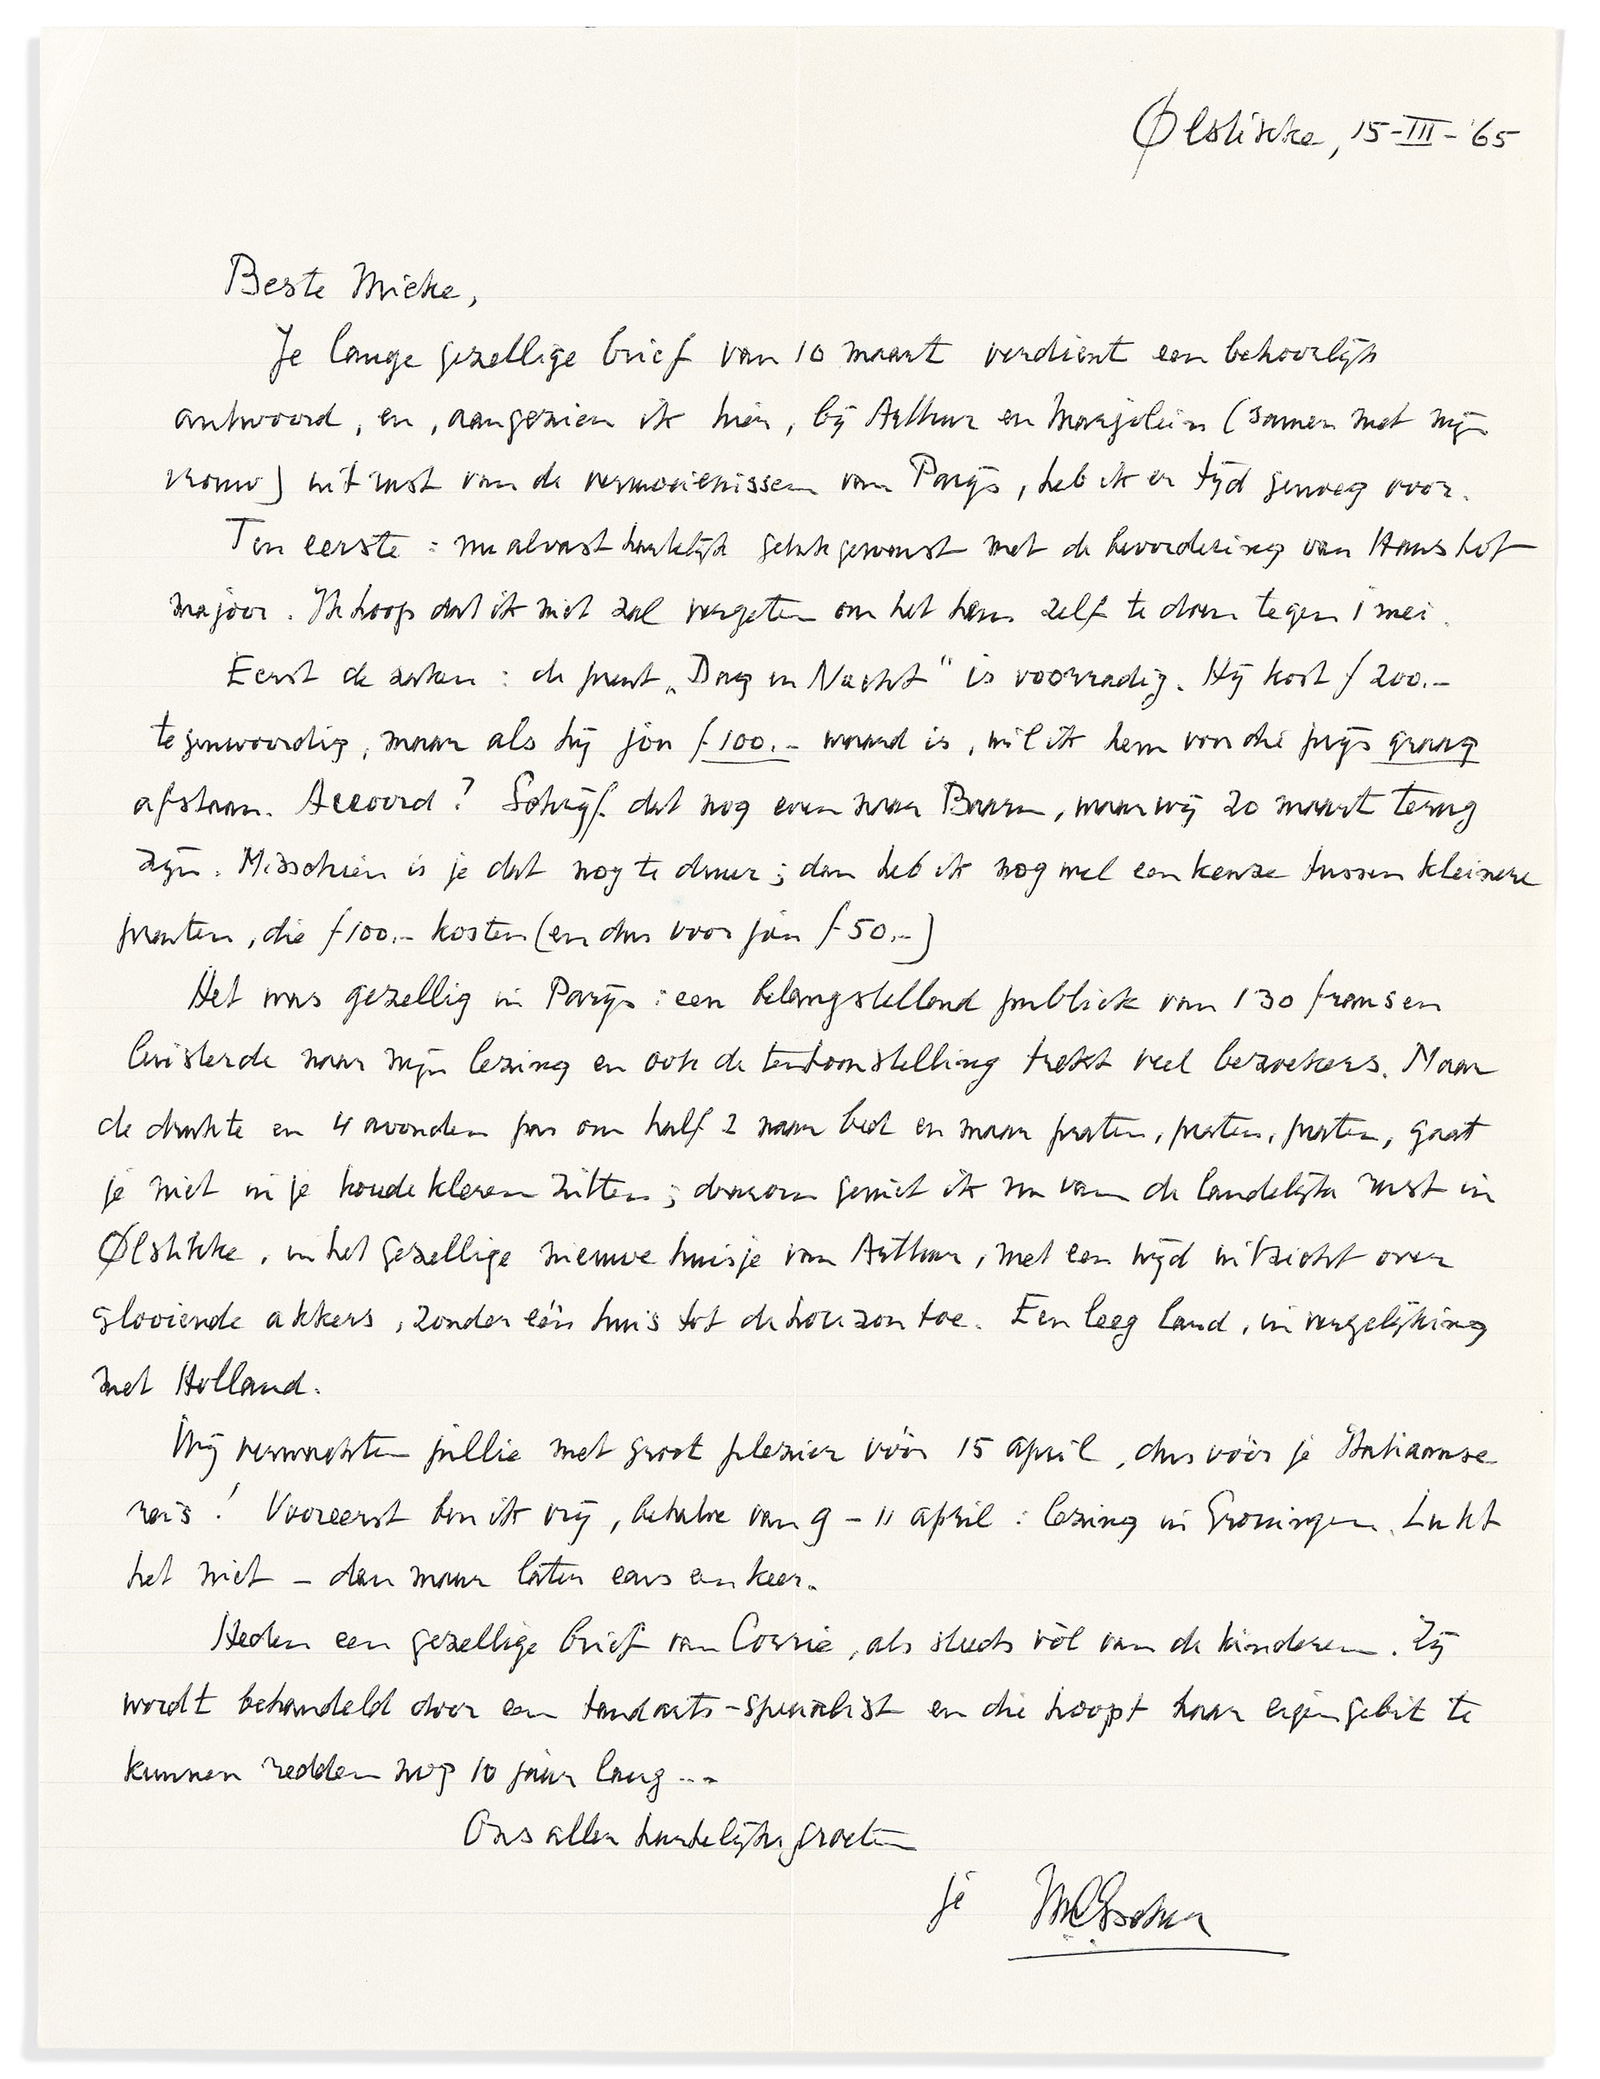 Ølstikke, 15-III-'65
Beste Mieke,
Je lange gezellige brief van 10 maart verdient een behoorlijk
antwoord, en, aangezien ik hier, bij Arthur en Marjolein (samen met mijn
vrouw) uitrust van de vermoeienissen van Parijs, heb ik er tijd genoeg voor.
Ten eerste: nu alvast hartelijk gelukgewenst met de bevordering van Hans tot
majoor. Ik hoop dat ik niet zal vergeten om het hem zelf te doen tegen 1 mei.
Eerst de zaken: de prent „Dag en Nacht" is voorradig. Hij kost f 200.-
tegenwoordig, maar als hij jou f 100.- waard is, wil ik hem voor die prijs graag
afstaan. Accoord? Schrijf dat nog even naar Baarn, waar wij 20 maart terug
zijn. Misschien is je dat nog te duur; dan heb ik nog wel een keuze tussen kleinere
prenten, die f 100.- kosten (en dus voor jou f 50.-)
Het was gezellig in Parijs: een belangstellend publiek van 130 fransen
luisterde naar mijn lezing en ook de tentoonstelling trekt veel bezoekers. Maar
de drukte en 4 avonden pas om half 2 naar bed en maar praten, praten, praten, gaat
je niet in je koude kleren zitten; daarom geniet ik nu van de landelijke rust in
Ølstikke, in het gezellige nieuwe huisje van Arthur, met een wijd uitzicht over
glooiende akkers, zonder één huis tot de horizon toe. Een leeg land, in vergelijking
met Holland.
Wij verwachten jullie met groot plezier vóór 15 april, dus vóór je Italiaanse
reis! Vooreerst ben ik vrij, behalve van 9 - 11 april: lezing in Groningen. Lukt
het niet - dan maar later eens een keer.
Heden een gezellige brief van Corrie, als steeds vól van de kinderen. Zij
wordt behandeld door een tandarts-specialist en die hoopt haar eigen gebit te
kunnen redden nog 10 jaar lang ...
Ons aller hartelijke groeten
je MCEscher